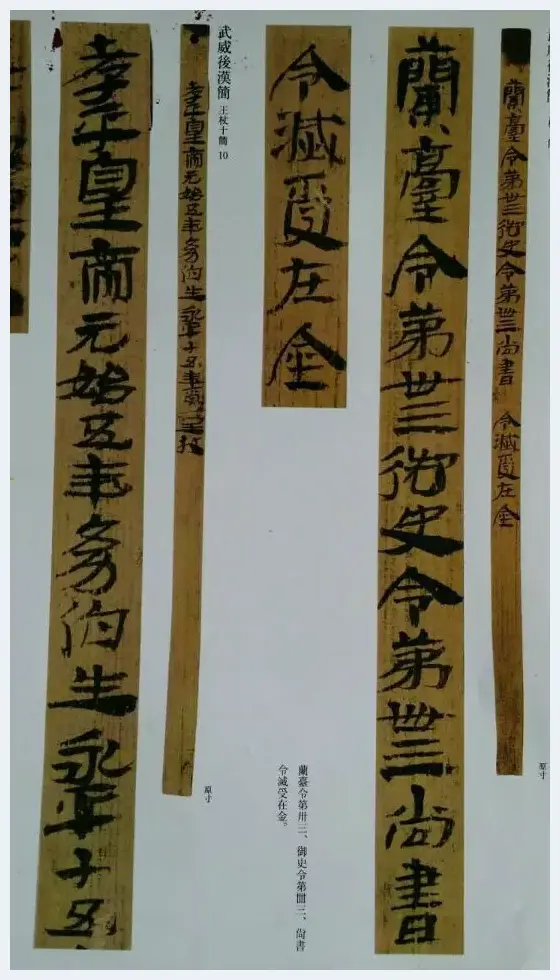 蘭臺令第卅三御史令第卌三尚書令滅受在金
原寸
蘭臺令第卅三御史令第卌三尚書
令滅受在金
蘭臺令第卅三、御史令第卌三、尚書
令滅受在金。
武威後漢簡 王杖十簡 10
孝平皇帝元始五年幼伯生永平十五年受王杖
原寸
孝平皇帝元始五年幼伯生永平十五